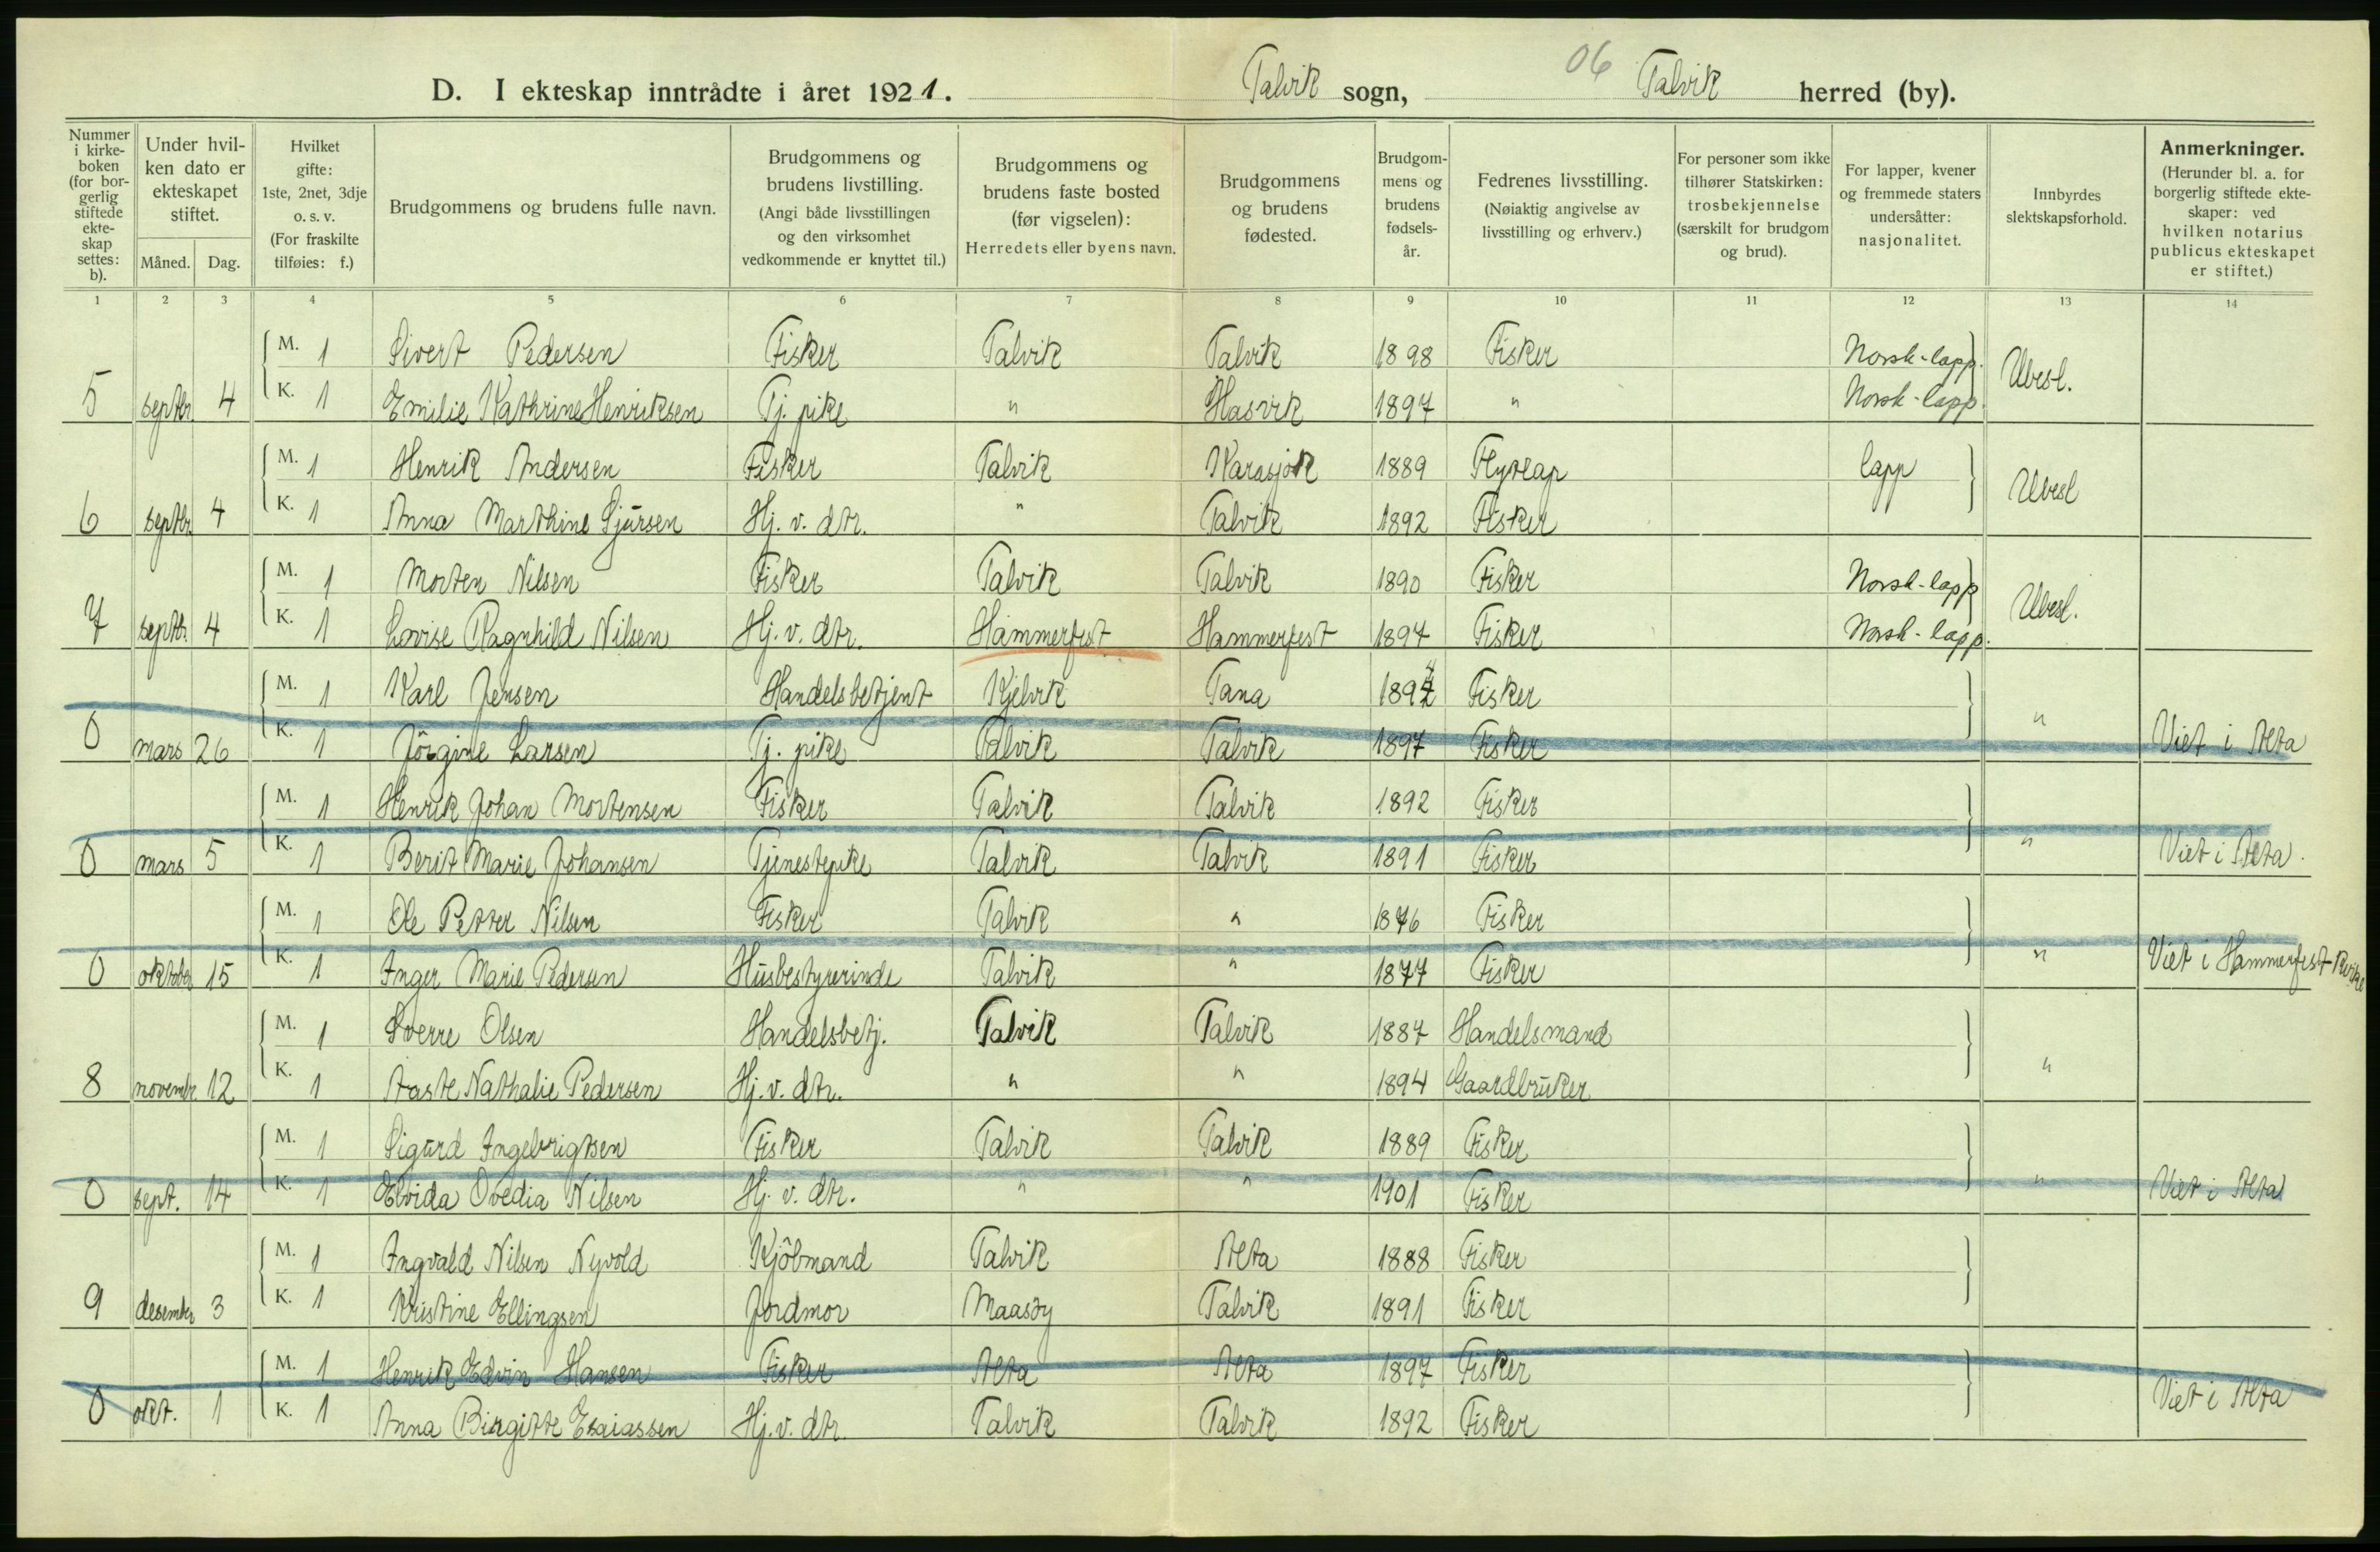 D. I ekteskap inntrådte i året 1921. Talvik sogn, 06 Talvik herred (by).
Nummer i kirkeboken (for borgerlig stiftede ekteskap settes: b).
Under hvilken dato er ekteskapet stiftet.
Måned. Dag.
Hvilket gifte: 1ste, 2net, 3dje o. s. v. (For fraskilte tilføies: f.)
Brudgommens og brudens fulle navn.
Brudgommens og brudens livstilling. (Angi både livsstillingen og den virksomhet vedkommende er knyttet til.)
Brudgommens og brudens faste bosted (før vigselen): Herredets eller byens navn.
Brudgommens og brudens fødested.
Brudgommens og brudens fødselsår.
Fedrenes livsstilling. (Nøiaktig angivelse av livsstilling og erhverv.)
For personer som ikke tilhører Statskirken: trosbekjennelse (særskilt for brudgom og brud).
For lapper, kvener og fremmede staters undersåtter: nasjonalitet.
Innbyrdes slektskapsforhold.
Anmerkninger. (Herunder bl. a. for borgerlig stiftede ekteskaper: ved hvilken notarius publicus ekteskapet er stiftet.)
1 2 3 4 5 6 7 8 9 10 11 12 13 14
M. 1 Sivert Pedersen Fisker Talvik Talvik 1898 Fisker Norsk-lapp.
5 septbr. 4 K. 1 Emilie Kathrine Henriksen Tj. pike " Hasvik 1897 " Norsk-lapp. Ubesl.
M. 1 Henrik Andersen Fisker Talvik Karasjok 1889 Flytlap lapp
6 septbr. 4 K. 1 Anna Marthine Sjursen Hj. v. dtr. " Talvik 1892 Fisker Ubesl
M. 1 Morten Nilsen Fisker Talvik Talvik 1890 Fisker Norsk-lapp
7 septbr. 4 K. 1 Lovise Ragnhild Nilsen Hj. v. dtr. Hammerfest Hammerfest 1897 Fisker Norsk-lapp. Ubesl.
M. 1 Karl Jensen Handelsbetjent Kjelvik Tana 189 Fisker
0 mars 26 K. 1 Jörgine Larsen Tj. pike Talvik Talvik 1897 Fisker " Viet i Alta
M. 1 Henrik Johan Mortensen Fisker Talvik Talvik 1892 Fisker
0 mars 5 K. 1 Berit Marie Johansen Tjenestepike Talvik Talvik 1891 Fisker " Viet i Alta.
M. 1 Ole Petter Nilsen Fisker Talvik " 1876 Fisker
0 oktober 15 K. 1 Inger Marie Pedersen Husbestyrerinde Talvik " 1877 Fisker " Viet i Hammerfest kirke
M. 1 Sverre Olsen Handelsbetj. Talvik Talvik 1887 Handelsmand
8 novembr. 12 K. 1 Aaste Nathalie Pedersen Hj. v. dtr. " " 1894 Gaardbruker "
M. 1 Sigurd Ingebrigtsen Fisker Talvik Talvik 1889 Fisker
0 sept. 14 K. 1 Elvida Ovedia Nilsen Hj. v. dtr. " " 1901 Fisker " Viet i Alta
M. 1 Ingvald Nilsen Nyvold Kjöbmand Talvik Alta 1888 Fisker
9 desembr 3 K. 1 Kristine Ellingsen Jordmor Maasöy Talvik 1891 Fisker
M. 1 Henrik Edvin Hansen Fisker Alta Alta 1897 Fisker
0 okt. 1 K. 1 Anna Birgitte Esaiassen Hj. v. dtr. Talvik Talvik 1892 Fisker Viet i Alta